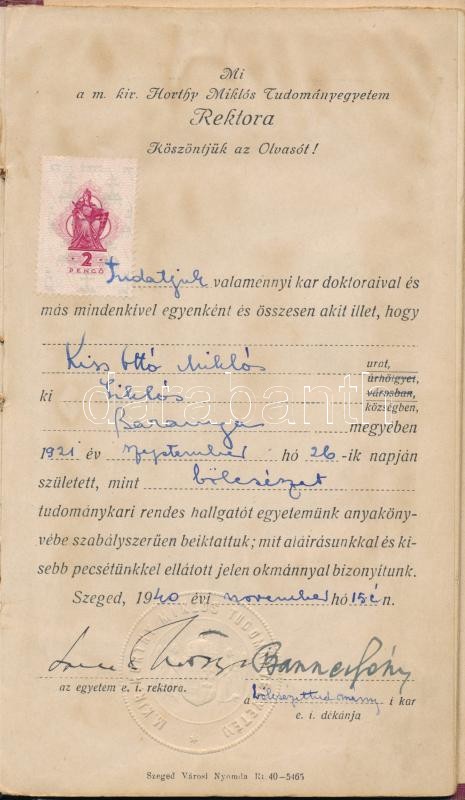 Mi
a m. kir. Horthy Miklós Tudományegyetem
Rektora
Köszöntjük az Olvasót!
2
PENGŐ
Tudatjuk valamennyi kar doktoraival és
más mindenkivel egyenként és összesen akit illet, hogy
Kiss Ottó Miklós urat,
úrhölgyet,
ki Siklós városban,
községben,
Baranya megyében
1921 év szeptember hó 26-ik napján
született, mint bölcsészet
tudománykari rendes hallgatót egyetemünk anyaköny-
vébe szabályszerűen beiktattuk; mit aláírásunkkal és ki-
sebb pecsétünkkel ellátott jelen okmánnyal bizonyítunk.
Szeged, 1940 évi november hó 15én.
Banner
az egyetem e. i. rektora.
a bölcsészettudományi kar
e. i. dékánja
Szeged Városi Nyomda Rt. 40—5465
darabanth